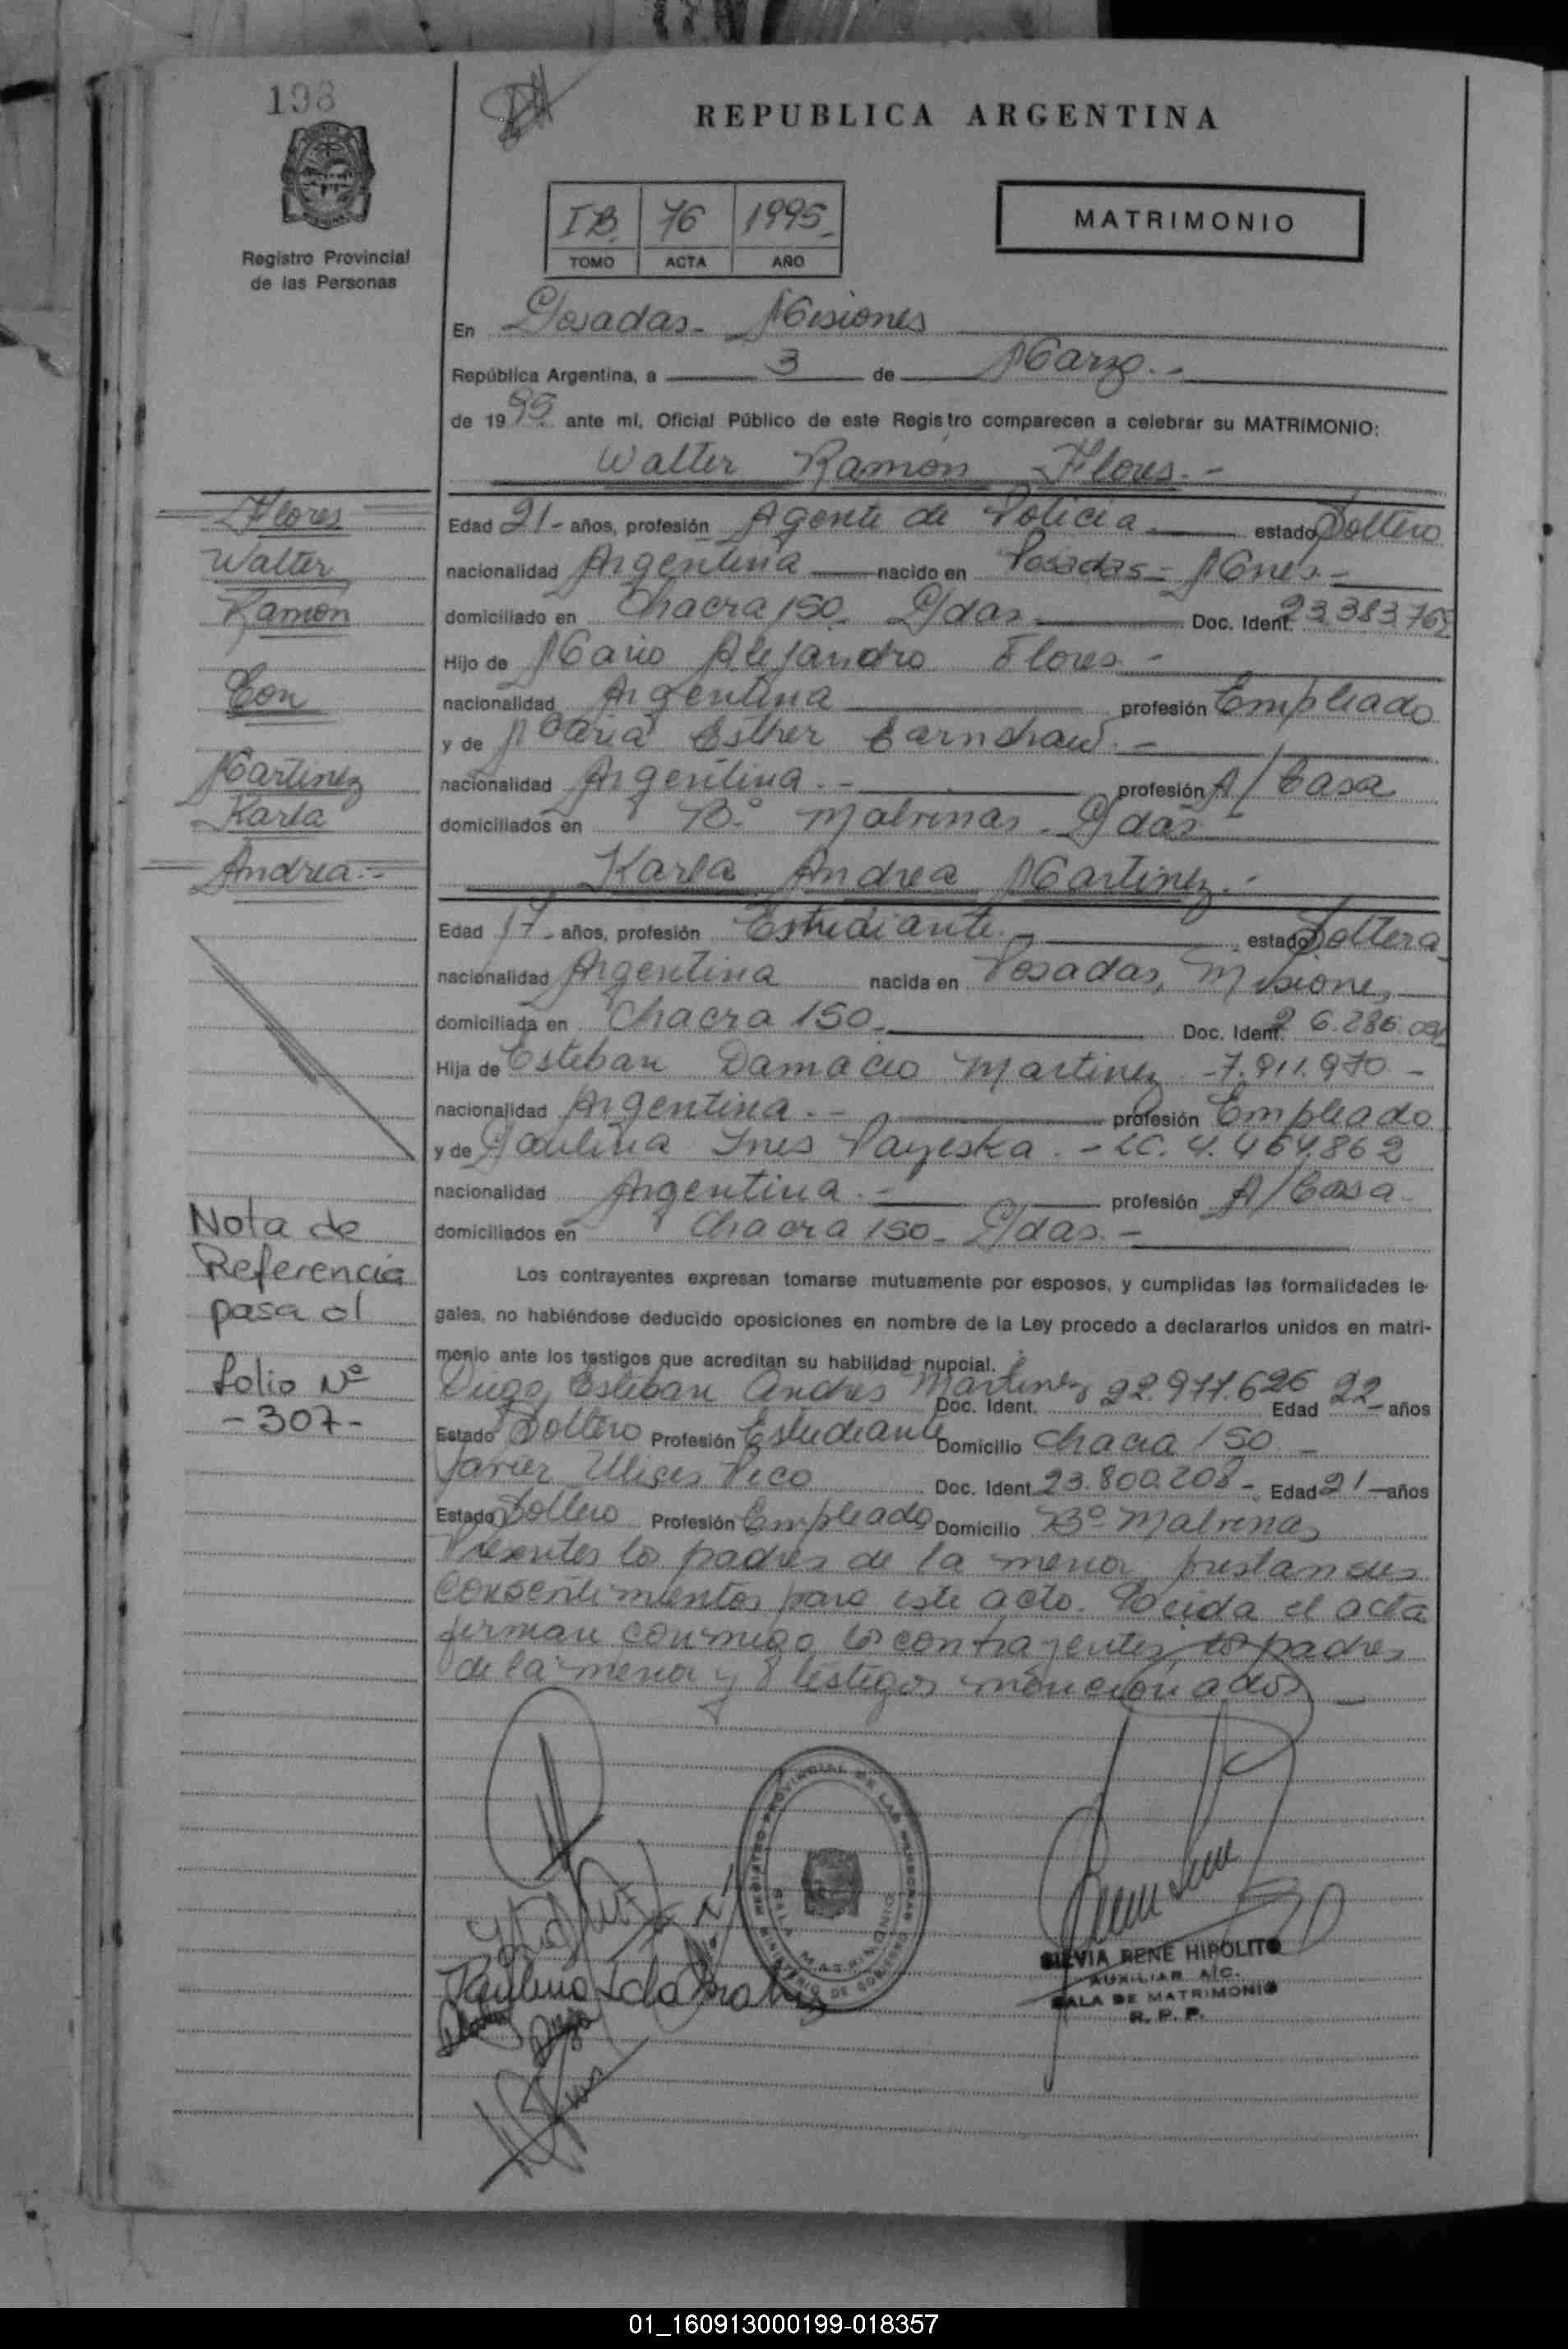 198
REPUBLICA ARGENTINA
I B. 76 1995
TOMO ACTA AÑO
MATRIMONIO
Registro Provincial
de las Personas
En Posadas - Misiones
República Argentina, a 3 de Marzo.-
de 1995 ante mí, Oficial Público de este Registro comparecen a celebrar su MATRIMONIO:
Walter Ramón Flores.-
Edad 21- años, profesión Agente de Policia estado Soltero
nacionalidad Argentina nacido en Posadas - Mnes.-
domiciliado en Chacra 150. Pdas Doc. Ident. 23.383.762
Hijo de Mario Alejandro Flores.-
nacionalidad Argentina profesión Empleado
y de Maria Esther Earnshaw.-
nacionalidad Argentina.- profesión A/ Casa
domiciliados en Bº Malvinas. Pdas
Karla Andrea Martinez.-
Edad 17- años, profesión Estudiante.- estado Soltera
nacionalidad Argentina nacida en Posadas, Misiones
domiciliada en Chacra 150.- Doc. Ident. 26.286.
Hija de Esteban Damacio Martinez -7.911.970-
nacionalidad Argentina.- profesión Empleado
y de Paulina Ines Payeska.- LC. 4.464.862
nacionalidad Argentina.- profesión A/ Casa
domiciliados en Chacra 150- Pdas.-
Los contrayentes expresan tomarse mutuamente por esposos, y cumplidas las formalidades le-
gales, no habiéndose deducido oposiciones en nombre de la Ley procedo a declararlos unidos en matri-
monio ante los testigos que acreditan su habilidad nupcial.
Diego Esteban Andres Martinez Doc. Ident. 22.977.626 Edad 22- años
Estado Soltero Profesión Estudiante Domicilio Chacra 150.-
Javier Ulises Pico Doc. Ident. 23.800.208- Edad 21- años
Estado Soltero Profesión Empleado Domicilio Bº Malvinas
Presentes los padres de la menor prestan sus
consentimientos para este acto. Leida el acta
firman conmigo los contrayentes los padres
de la menor y testigos mencionados
Flores
Walter
Ramon
Con
Martinez
Karla
Andrea.-
Nota de
Referencia
pasa al
folio Nº
-307-
REGISTRO PROVINCIAL DE LAS PERSONAS
MINISTERIO DE GOBIERNO
SALA MATRIMONIO
SILVIA RENE HIPOLITO
AUXILIAR A/C.
SALA DE MATRIMONIO
R. P. P.
01_160913000199-018357